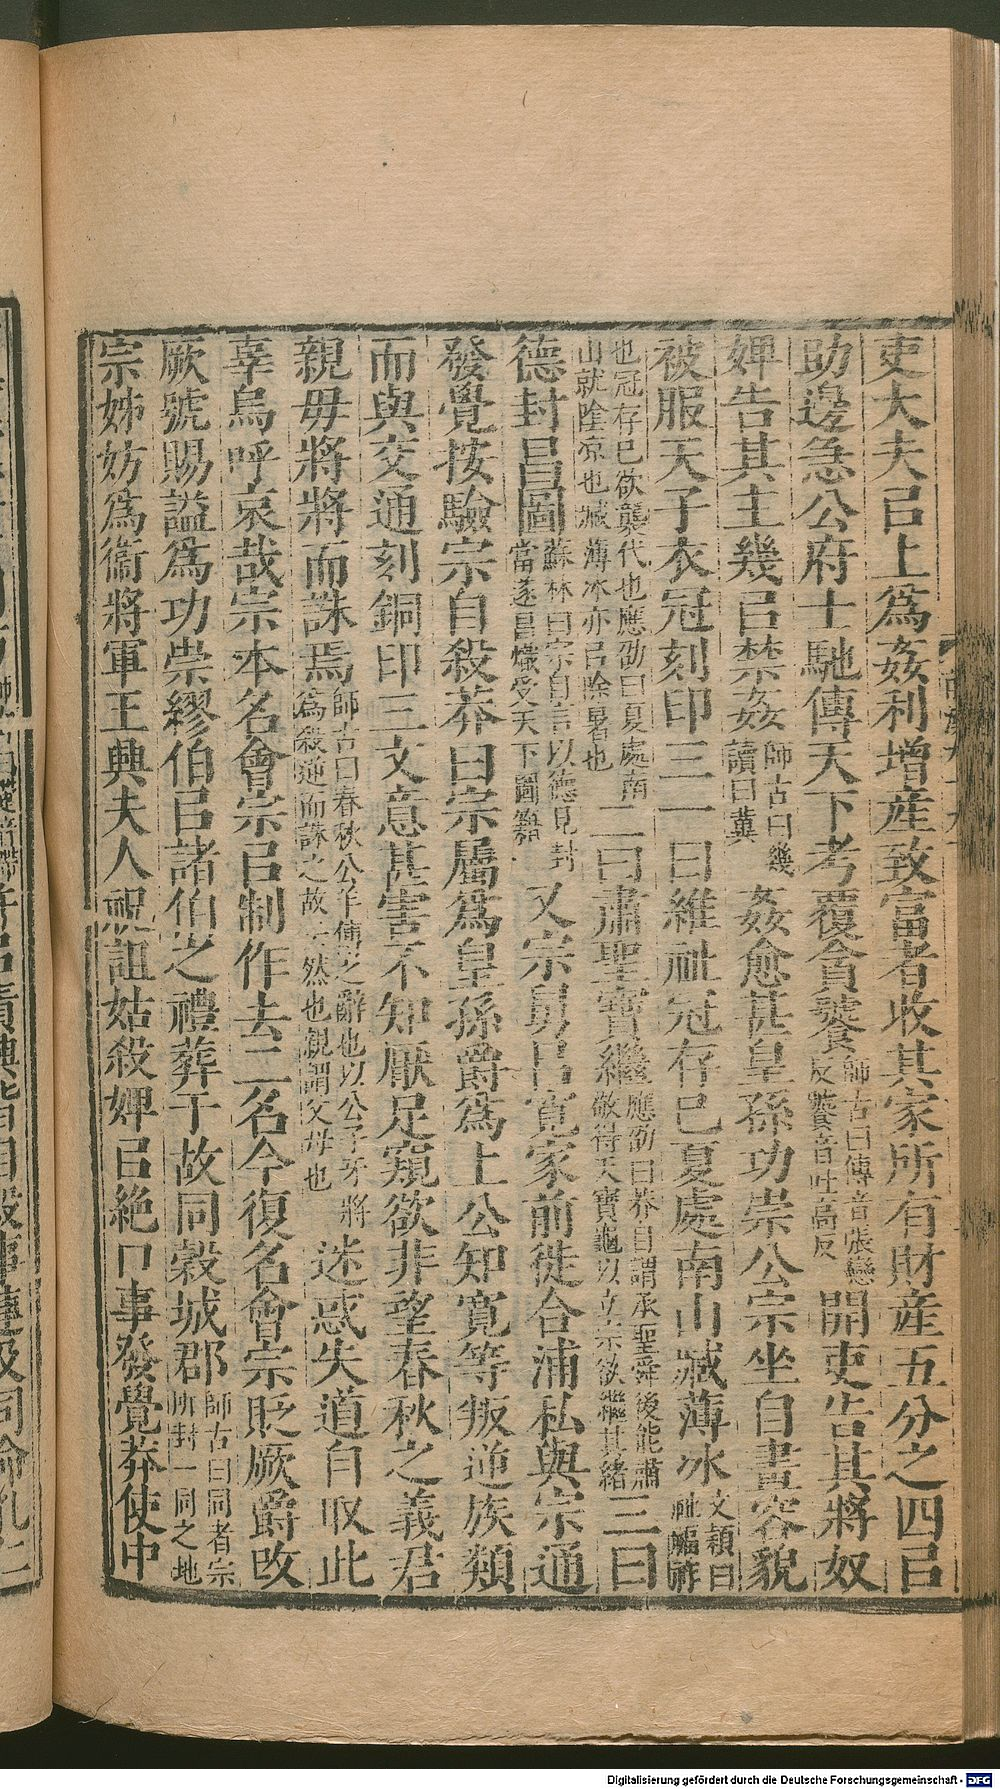 吏大夫㠯上爲姦利增産致富者收其家所有財産五分之四㠯
助邊急公府士馳傳天下考覆貪饕師古曰傳音張戀反饕音吐高反開吏告其將奴
婢告其主幾㠯禁姦師古曰幾讀曰冀姦愈甚皇孫功崇公宗坐自畫容貌
被服天子衣冠刻印三一曰維祉冠存己夏處南山臧薄冰文穎曰祉福祚
也冠存已欲襲代也應劭曰夏處南山就陰凉也臧薄冰亦㠯除暑也二曰肅聖寶繼應劭曰莽自謂承聖舜後能肅敬得天寶龜以立宗欲繼其緒三曰
德封昌圖蘇林曰宗自言以德見封當遂昌熾受天下圖籍又宗舅呂寬家前徙合浦私與宗通
發覺按驗宗自殺莽曰宗屬爲皇孫爵爲上公知寬等叛逆族類
而與交通刻銅印三文意甚害不知厭足窺欲非望春秋之義君
親毋將將而誅焉師古曰春秋公羊傳之辭也以公子牙將爲殺逆而誅之故云然也親謂父母也迷惑失道自取此
辜烏呼哀哉宗本名會宗㠯制作去二名今復名會宗貶厥爵改
厥號賜謚爲功崇繆伯㠯諸伯之禮葬于故同穀城郡師古曰同者宗所封一同之地
宗姊妨爲衞將軍王興夫人祝詛姑殺婢㠯絶口事發覺莽使中